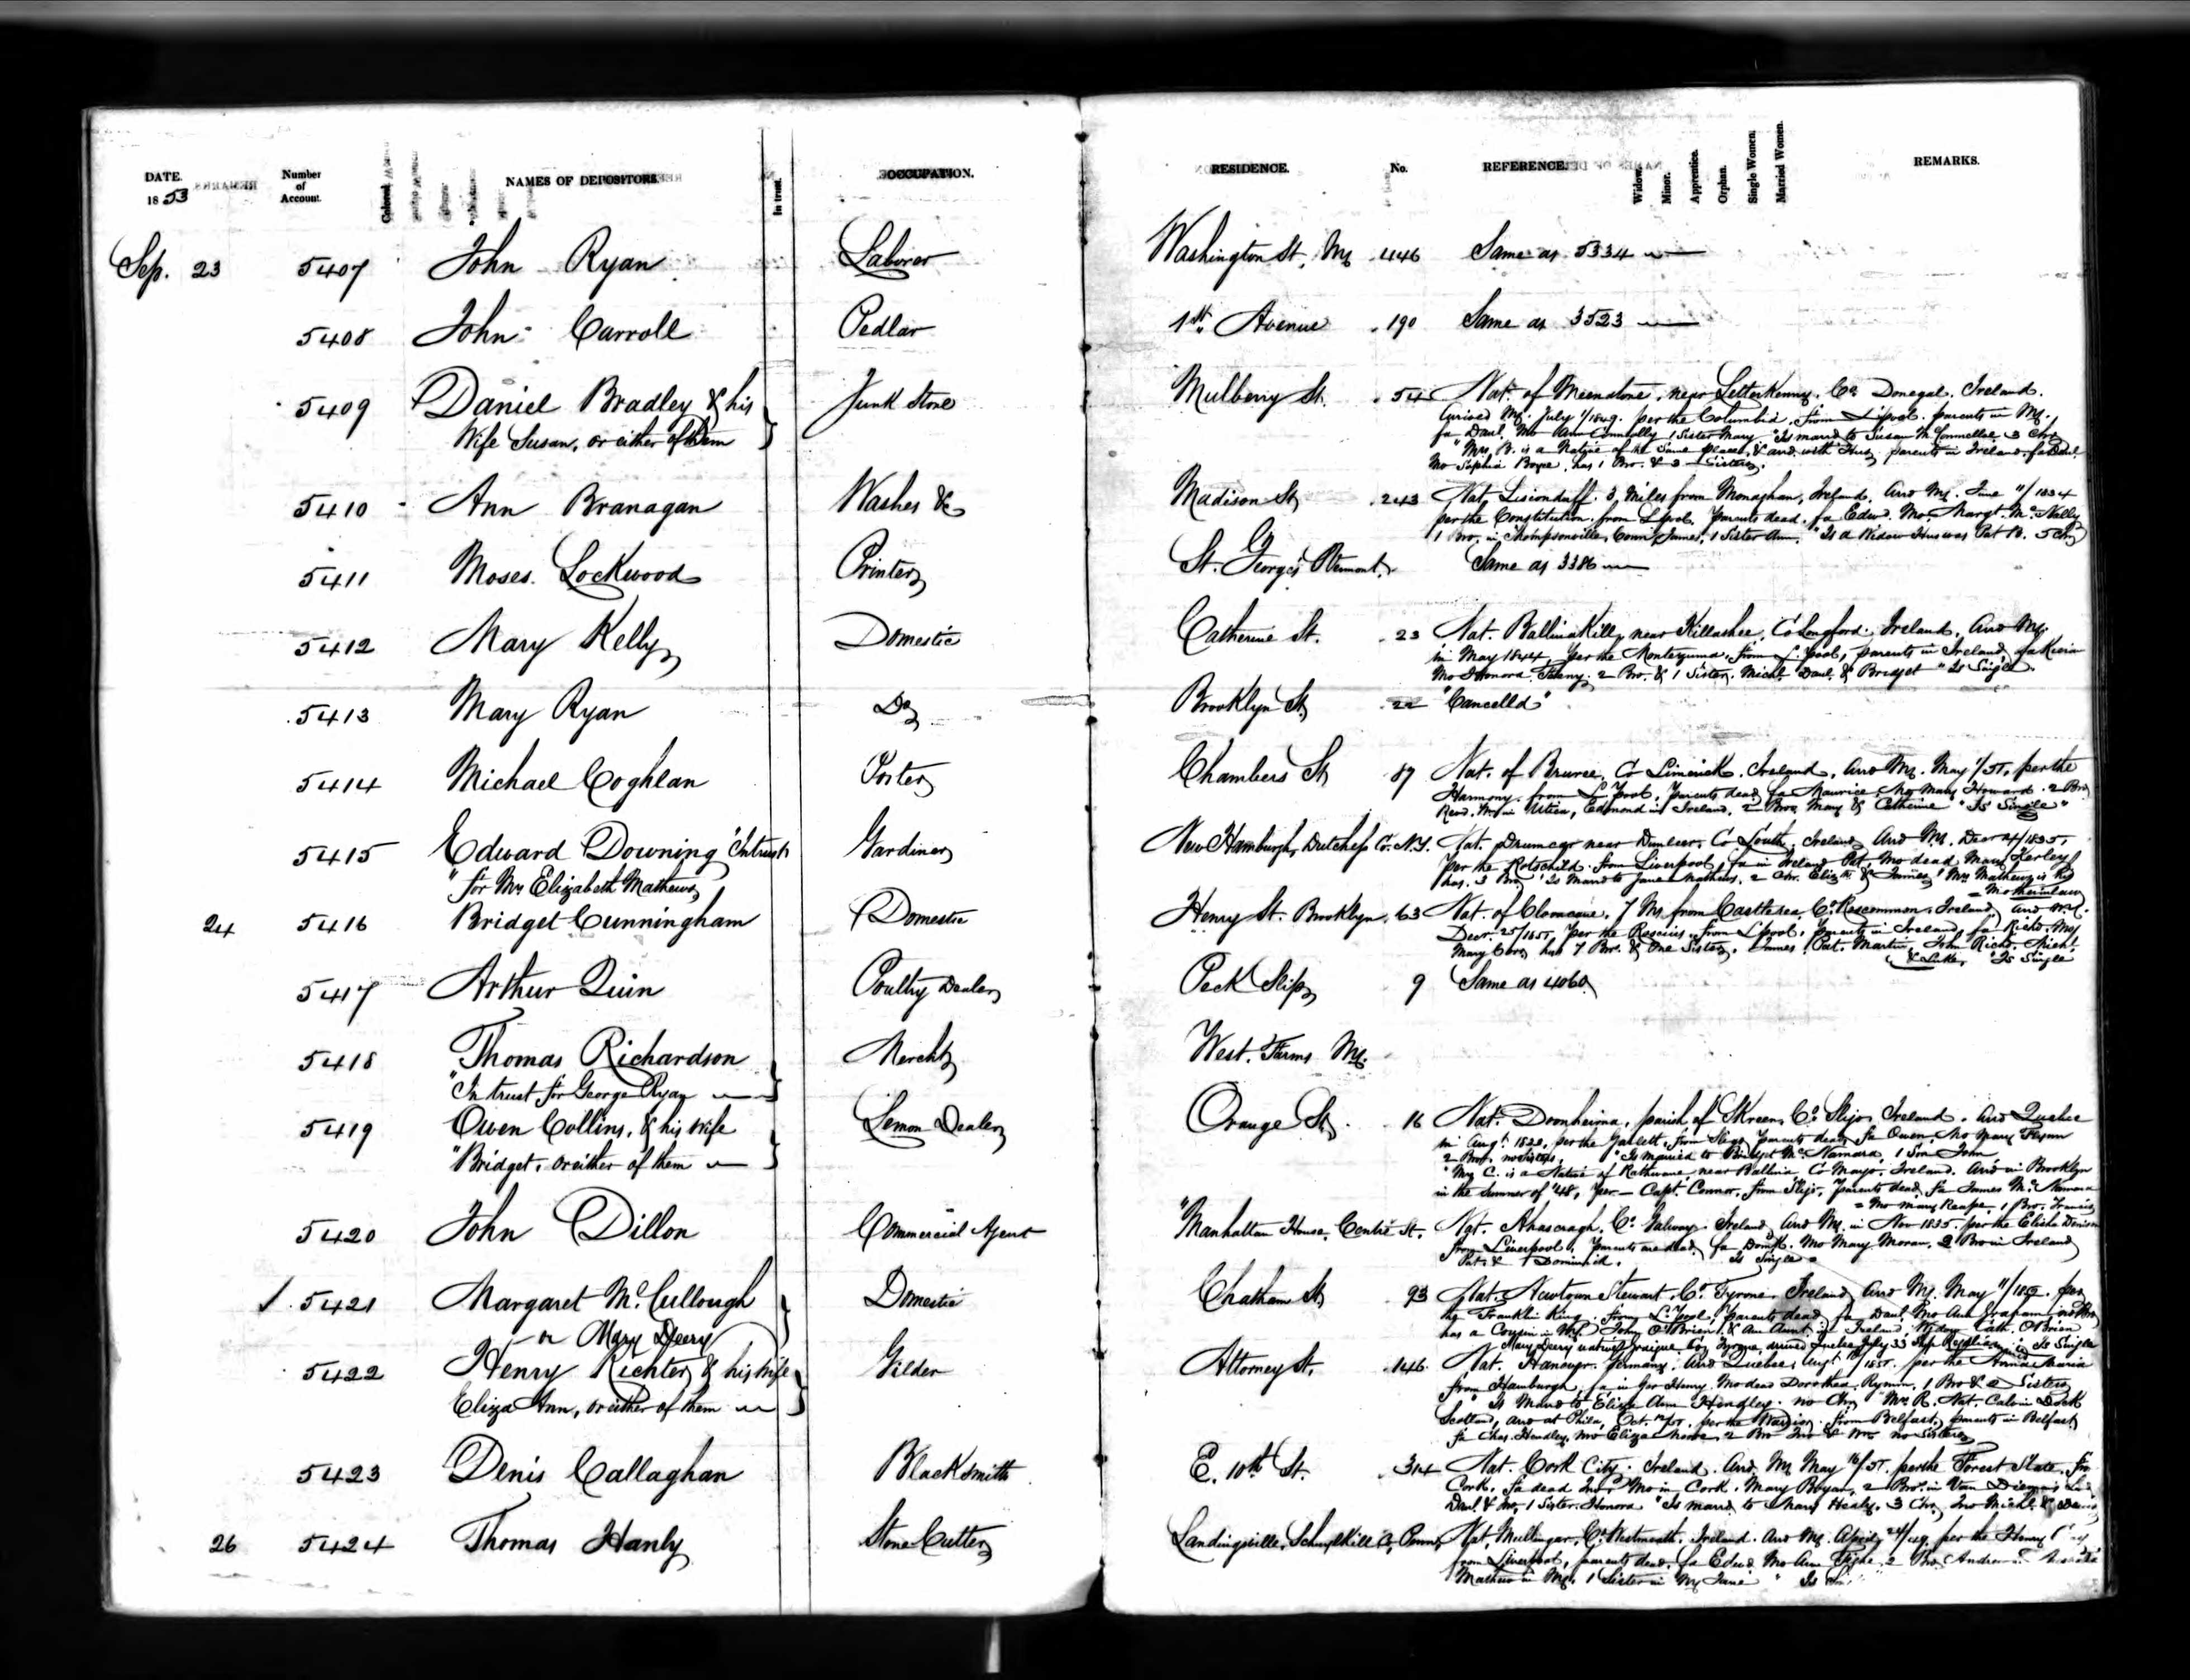 DATE. Number of Account. Colored. NAMES OF DEPOSITORS. In trust. OCCUPATION. RESIDENCE. No. REFERENCE. Widow. Minor. Apprentice. Orphan. Single Women. Married Women. REMARKS.
1853
Sep. 23 5407 John Ryan Laborer Washington St. 446 Same as 5334
5408 John Carroll Pedlar 1st Avenue 190 Same as 3523
5409 Daniel Bradley & his Junk Store Mulberry St. 54 Nat. of near Letterkenny, Co. Donegal. Ireland.
Wife Susan, or either of them
Arrived July 1/1849. per the Columbia, from L'pool. parents in
fa Danl. Mo Ann Connolly 1 Sister Mary "Is marrd to Susan 3 Chn
"Mrs. B. is a Native of the Same place, & arrd. with Hus, parents in Ireland, fa
Mo Sophia Boyce, has 1 Bro. & 3 Sisters.
5410 Ann Branagan Washes &c Madison St 243 Nat. 3 Miles from Monaghan, Ireland, Arrd June 11/1834
per the Constitution. from L'pool. Parents dead, fa Edwd. Mo. Margt. McNally
1 Bro. in Thompsonville, Conn, James, 1 Sister Ann. "Is a Widow Hus was Pat B. 5 Chn
5411 Moses Lockwood Printer St. George's Vermont. Same as 3386
5412 Mary Kelly Domestic Catherine St. 23 Nat. Ballinakill, near Killashee, Co Longford. Ireland, Arrd
in May 1844, per the Montezuma, from L'pool, parents in Ireland, fa
Mo Honora 2 Bro. & 1 Sister. Michl. Danl. & Bridget "Is Single.
5413 Mary Ryan Do Brooklyn St 22 "Cancelled"
5414 Michael Coghlan Porter Chambers St 87 Nat. of Bruree, Co Limerick, Ireland, Arrd May per the
Harmony, from L'Pool, parents dead, fa Maurice, Mo Mary Howard. 2 Bro
in Utica, Edmond in Ireland, 2 Mary & Catherine "Is Single"
5415 Edward Downing "Intrust Gardiner New Hamburgh, Dutchess Co. N.Y. Nat. near Dunleer, Co Louth, Ireland, Arrd Decr 1835,
"for Mrs Elizabeth Mathews
per the Rotschild, from Liverpool, fa in Ireland Pat, Mo dead, Mary
has 3 Bro "Is Marrd to Jane Mathews, 2 Chr. Elizth. & James "Mrs Mathews is his
Motherinlaw
24 5416 Bridget Cunningham Domestic Henry St. Brooklyn, 63 Nat. of 7 Ms from Castlerea, Co. Roscommon. Ireland, Arrd
Decr. 25/ per the Roscius, from L'pool, parents in Ireland fa Richd. Mo
Mary has 7 Bro. & One Sister. James, Pat. Martin, John Richd. Michl.
& Luke, "Is Single
5417 Arthur Quin Poultry Dealer Peck Slip 9 Same as 4060
5418 Thomas Richardson Mercht West. Farms
"In trust for George Ryan
5419 Owen Collins, & his wife Lemon Dealer Orange St. 16 Nat. parish of Skreen, Co. Sligo Ireland. Arrd Quebec
"Bridget, or either of them
in Augt. per the from Sligo parents dead, fa Owen, Mo Mary Flynn
2 Bro. no Sisters. "Is married to Bridget McNamara, 1 Son John
"Mrs C. is a Native of near Ballina, Co Mayo, Ireland. Arrd in Brooklyn
in the Summer of '48, per — Capt. Connor, from Sligo, parents dead, fa James McNamara
Mo Mary 1 Bro. Francis
5420 John Dillon Commercial Agent "Manhattan House, Centre St. Nat. Ahascragh, Co. Galway. Ireland, Arrd in Nov 1835. per the Elisha Denison
from Liverpool, parents are dead, fa Mo Mary Moran, 2 Bro in Ireland
Pat. & 1 Dominick. Is Single
5421 Margaret McCullough Domestic Chatham St 93 Nat. Newtown Stewart, Co. Tyrone, Ireland, Arrd May per
or Mary Deery
the Franklin King, from L'Pool, parents dead, fa Danl. Mo Ann Graham
has a Cousin in John O'Brien, & An Aunt in Ireland, Cath. O'Brien
Mary Deery native Tyrone, arrived Quebec July Is Single
5422 Henry Richter & his wife Gilder Attorney St. 146 Nat. Hanover, Germany, Arrd Quebec, Augt. per the Anna Maria
Eliza Ann, or either of them
from Hamburgh, fa in Ger Henry, Mo dead Dorothea 1 Bro & 2 Sisters
Is Marrd to Eliza Ann Hendley. no Chn "Mrs R. Nat.
Scotland, Arrd at Phila, Oct. per the from Belfast, parents in Belfast
fa Chas. Hendley, Mo Eliza 2 Bro no Sisters
5423 Denis Callaghan Blacksmith E. 10th St. 314 Nat. Cork City. Ireland. Arrd. May per the Forest State, from
Cork, fa dead Mo in Cork, Mary Bryan, 2 Bro. in Van Diemens
Danl. & 1 Sister Honora "Is marrd to Mary Healy, 3 Chn Jno Michl. &
26 5424 Thomas Hanly Stone Cutter Landingville, Schuylkill Co, Penn, Nat. Mullingar, Co. Westmeath, Ireland. Arrd April 24/49, per the Henry
from Liverpool, parents dead, fa Edwd Mo Ann Tighe, 2 Bro Andrew
Mathew in 1 Sister in Jane " Is